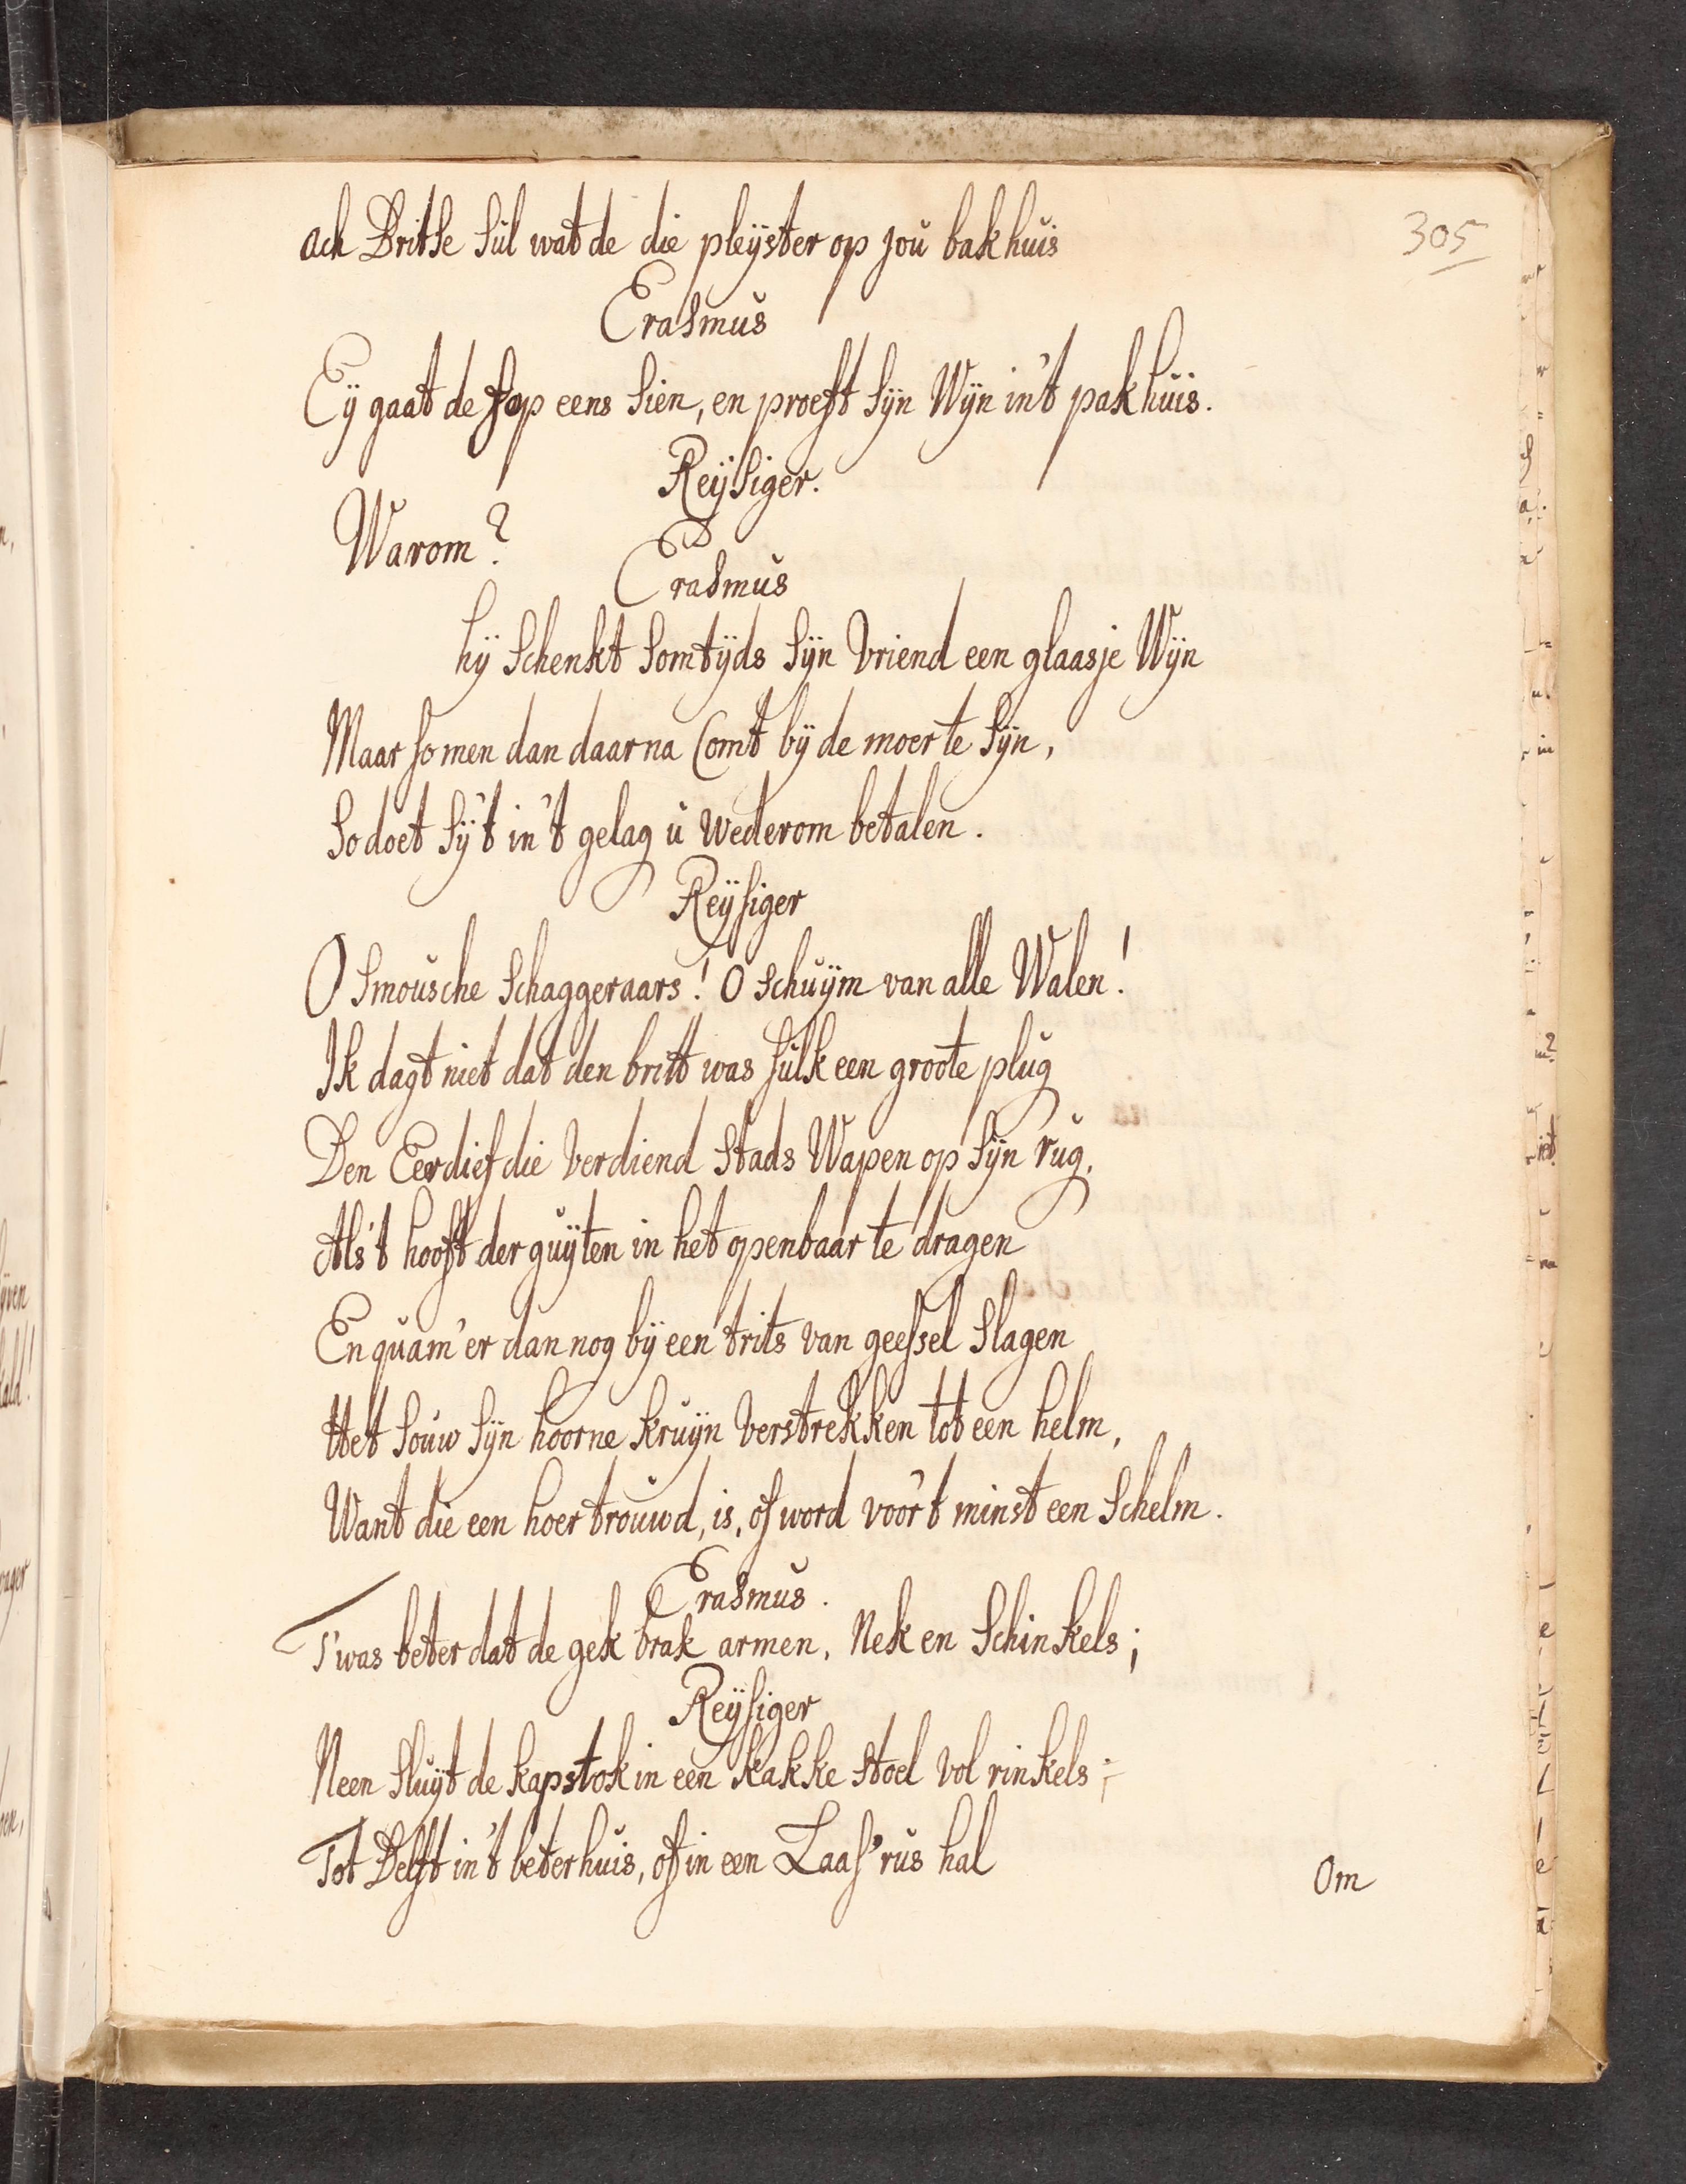 305
ach Dritse sul wat de die pleÿster op jou bakhuis
Erasmus
Eÿ gaat de sop eens sien, en proeft sÿn Wÿn in't pakhuis.
Reÿsiger.
Warom?
Erasmus
hÿ schenkt somtÿds sÿn vriend een glaasje Wÿn
Maar so men dan daar na Comt bÿ de moer te sÿn,
So doet sÿ't in't gelag u wederom betalen.
Reÿsiger
O smousche schaggeraars! O schuÿm van alle Walen!
Ik dagt niet dat den britt was sulk een groote plug
Den Eerdief die verdiend stads Wapen op sÿn rug,
Als't hooft der guÿten in het openbaar te dragen
En quam'er dan nog bÿ een trits van geessel slagen
Het souw sÿn hoorne kruÿn verstrekken tot een helm,
Want die een hoer trouwd, is, of word voor't minst een schelm.
Erasmus.
T'was beter dat de gek brak armen, Nek en schinkels;
Reÿsiger
Neen sluÿt de kapstok in een kakke stoel vol rinkels;
Tot Delft in't beterhuis, of in een Laas'rus hal
Om